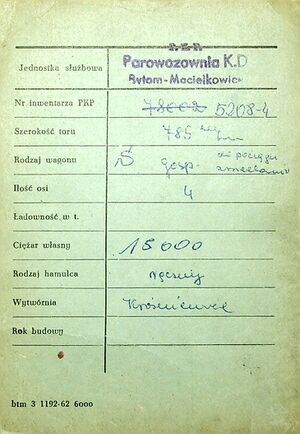 P.K.P.
Jednostka służbowa Parowozownia K.D
Bytom-Maciejkowice
Nr inwentarza PKP 78002 5208-4
Szerokość toru 785 mm
Rodzaj wagonu S gosp. do pociągu
Ilość osi 4
Ładowność w t.
Ciężar własny 15000
Rodzaj hamulca ręczny
Wytwórnia
Rok budowy
btm 3 1192-62 6000